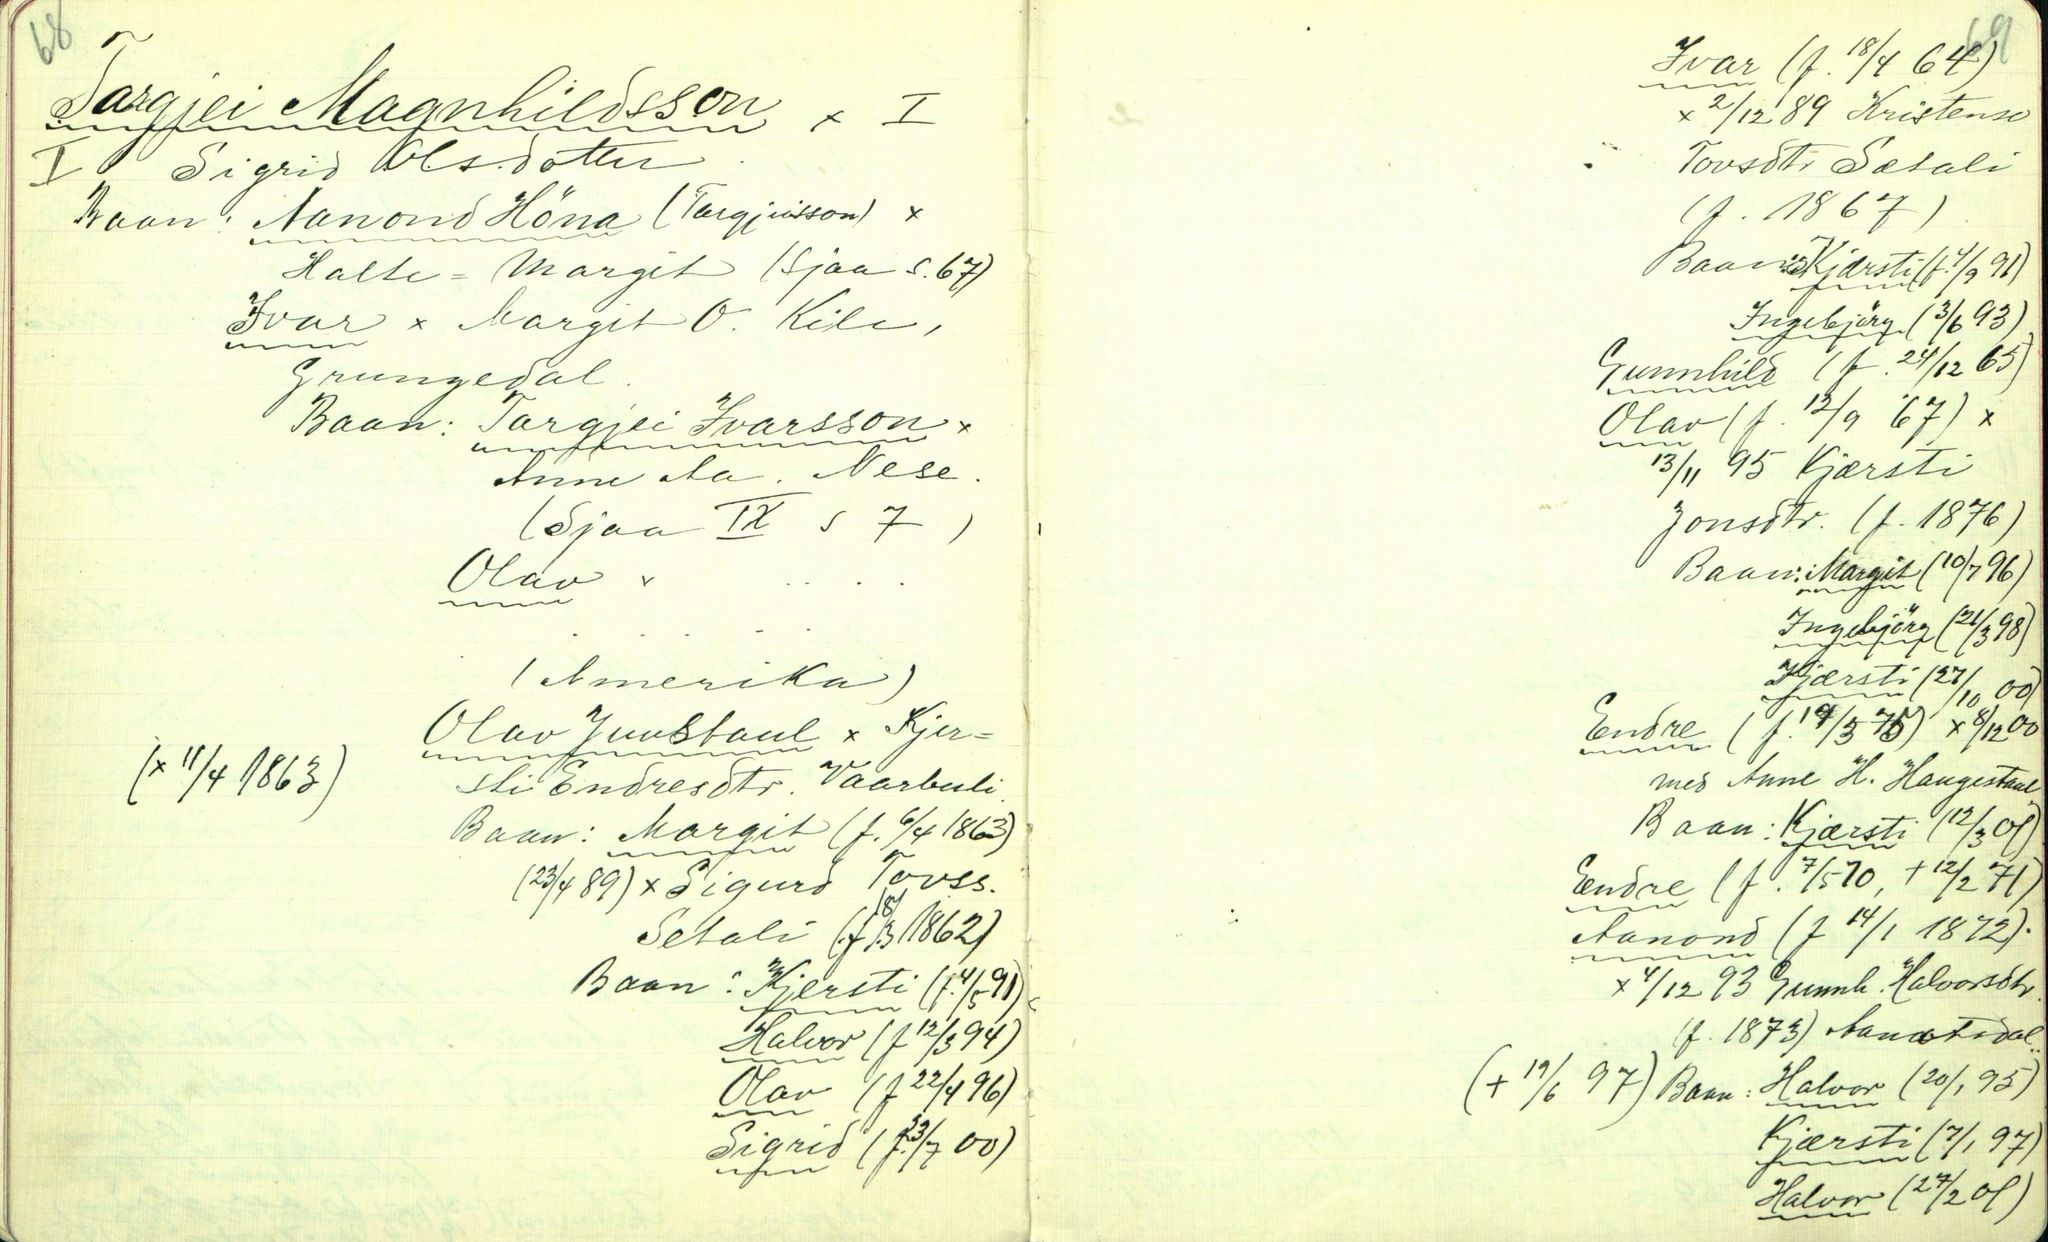 68
Targjei Magnhildsson x I
I Sigrid Olsdotter
Baan: Aanond Höna (Targjeisson) x
Halte-Margit (Sjaa s. 67)
Ivar x Margit O. Kile,
Grungedal.
Baan: Targjei Ivarsson x
Anne Aa. Nese.
(Sjaa IX s 7)
Olav x . . . .
. . . .
(Amerika)
Olav Juvstaul x Kjer-
(x 11/4 1863) sti Endresdtr. Vaarbuli
Baan: Margit (f. 6/4 1863)
(23/4 89) x Sigurd Tovss.
Setali (f. 18/3 1862)
Baan: Kjersti (f. 4/5 91)
Halvor (f 12/3 94)
Olav (f 22/4 96)
Sigrid (f. 23/7 00)
69
Ivar (f. 18/4 64)
x 2/12 89 Kristense
Tovsdtr Setali
(f. 1867)
Baan: Kjærsti (f. 4/9 91)
Ingebjörg (3/6 93)
Gunnhild (f. 24/12 65)
Olav (f. 12/9 67) x
13/11 95 Kjærsti
Jonsdtr. (f. 1876)
Baan: Margit (10/7 96)
Ingebjörg (21/3 98)
Kjærsti (27/10 00)
Endre (f. /3 75) x 8/12 00
med Anne H. Haugestaul
Baan: Kjærsti (12/3 01)
Endre (f. 7/5 70, + 12/2 71)
Aanond (f 14/1 1872).
x 4/12 93 Gunnh. Halvorsdtr.
(f. 1873)
(+ 19/6 97) Baan: Halvor (20/1 95)
Kjærsti (7/1 97)
Halvor (27/2 01)